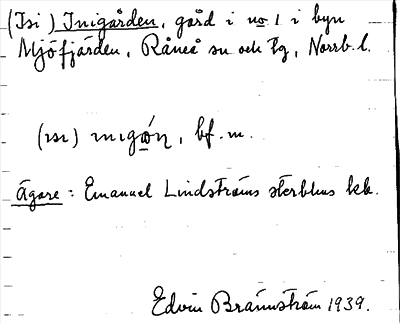 (Isi) Inigården, gård i no 1 i byn
Mjöfjärden, Råneå sn och tg, Norrb. l.
(ɪsɪ) ɪnɪgǫ́ṇ, bf. m.
Ägare: Emanuel Lindströms sterbhus
Edvin Brännström 1939.